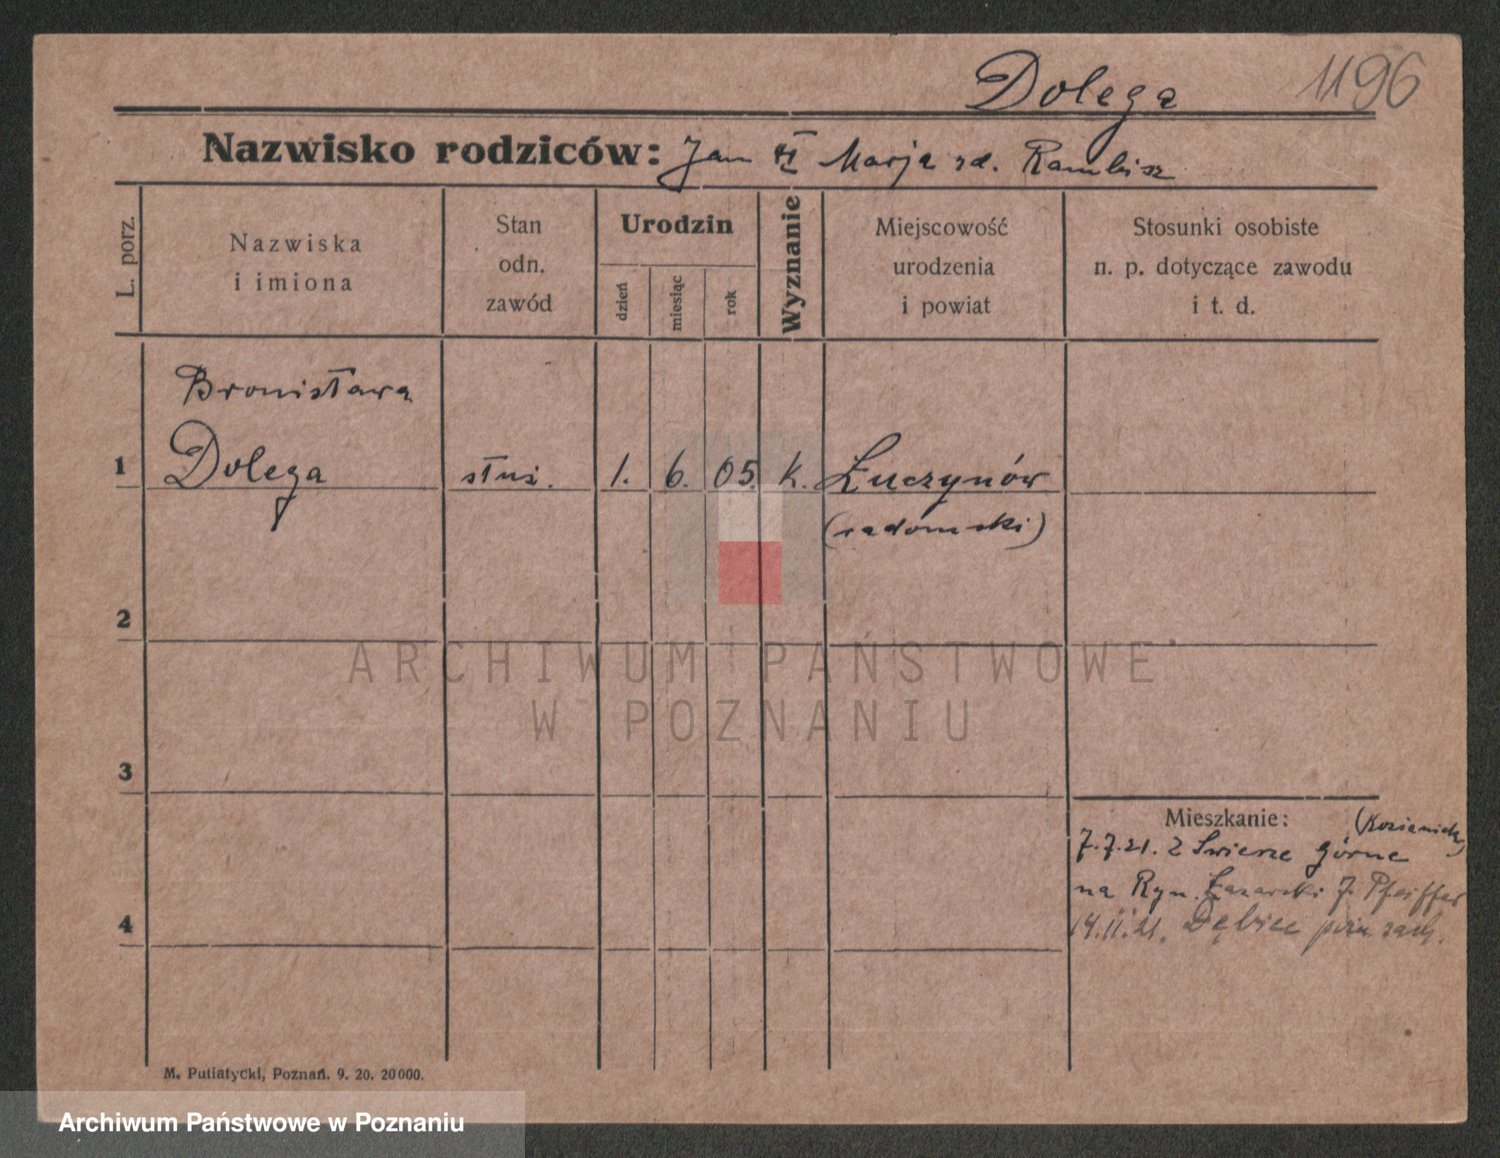 Dolega 1196
Nazwisko rodziców: Jan Marja rd.
L. porz.
Nazwiska
i imiona
Stan
odn.
zawód
Urodzin
dzień
miesiąc
rok
Wyznanie
Miejscowość
urodzenia
i powiat
Stosunki osobiste
n. p. dotyczące zawodu
i t. d.
Bronisława
1 Dolega służ. 1. 6. 05. k. Łuczynów
(radomski)
2
3
4
Mieszkanie:
7.7.21. z Świerze górne
na Ryn. Łazarski 7. Pfeiffer
14.11.21. Dębiec
M. Putiatycki, Poznań. 9. 20. 20000.
ARCHIWUM PAŃSTWOWE
W POZNANIU
Archiwum Państwowe w Poznaniu